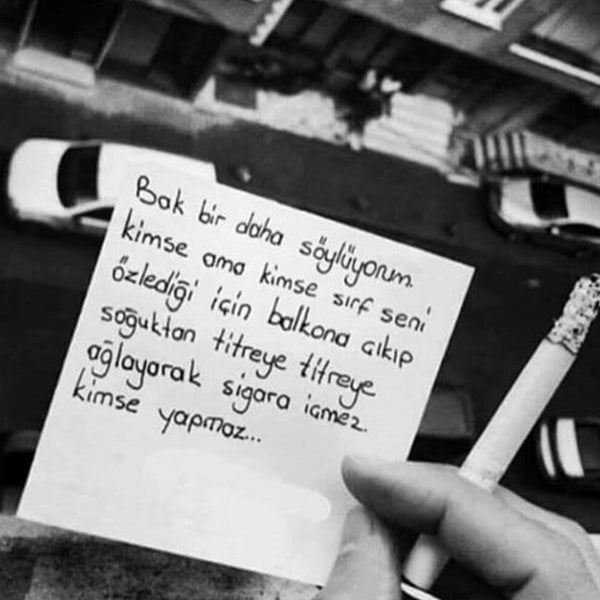 Bak bir daha söylüyorum.
kimse ama kimse sırf seni
özlediği için balkona çıkıp
soğuktan titreye titreye
ağlayarak sigara içmez.
kimse yapmaz...